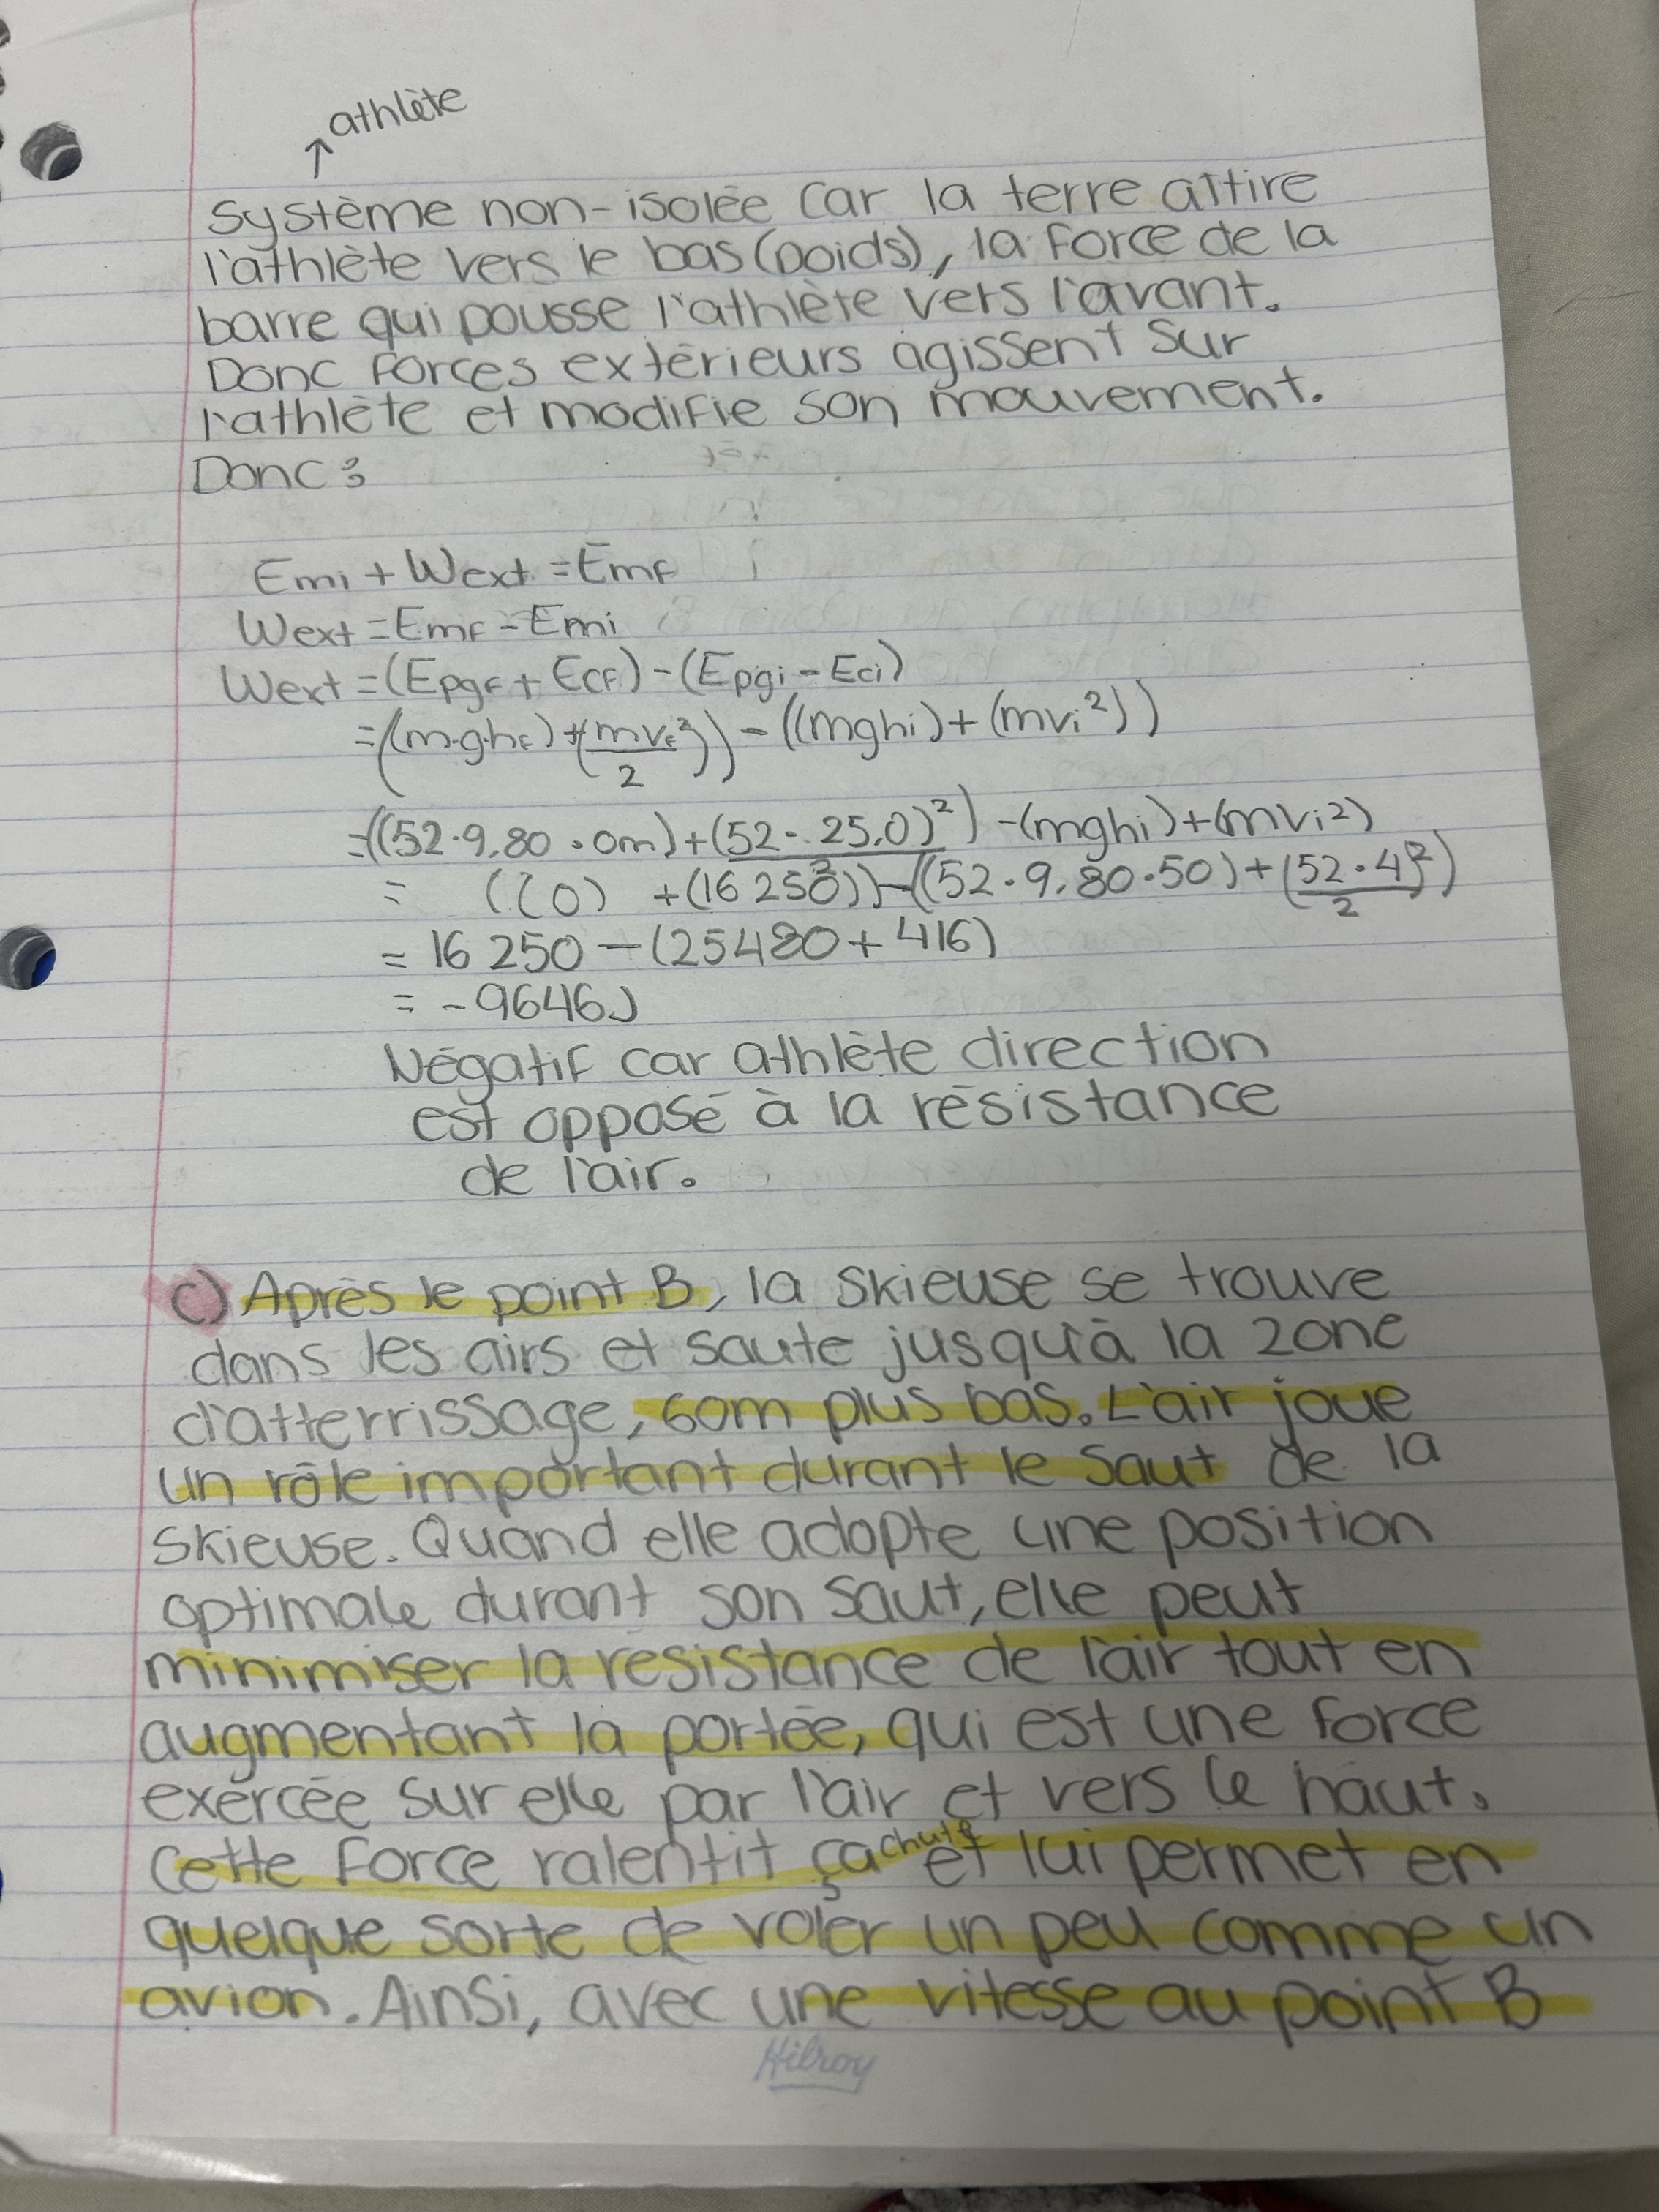 athlète
Système non-isolée car la terre attire
l'athlète vers le bas (poids), la force de la
barre qui pousse l'athlète vers l'avant.
Donc forces extérieurs agissent sur
l'athlète et modifie son mouvement.
Donc :
Emi + Wext = Emf
Wext = Emf - Emi
Wext = (Epgf + Ecf) - (Epgi - Eci)
= ((m·g·hf) + (mvf²/2)) - ((mghi) + (mvi²))
= ((52·9,80·0m) + (52·25,0)²/2) - (mghi) + (mvi²)
= ((0) + (16 250)) - ((52·9,80·50) + (52·4²/2))
= 16 250 - (25480 + 416)
= -9646J
Négatif car athlète direction
est opposé à la résistance
de l'air.
c) Après le point B, la skieuse se trouve
dans les airs et saute jusqu'à la zone
d'atterrissage, 60m plus bas. L'air joue
un rôle important durant le saut de la
skieuse. Quand elle adopte une position
optimale durant son saut, elle peut
minimiser la résistance de l'air tout en
augmentant la portée, qui est une force
exercée sur elle par l'air et vers le haut.
Cette force ralentit ça chute et lui permet en
quelque sorte de voler un peu comme un
avion. Ainsi, avec une vitesse au point B
Hilroy